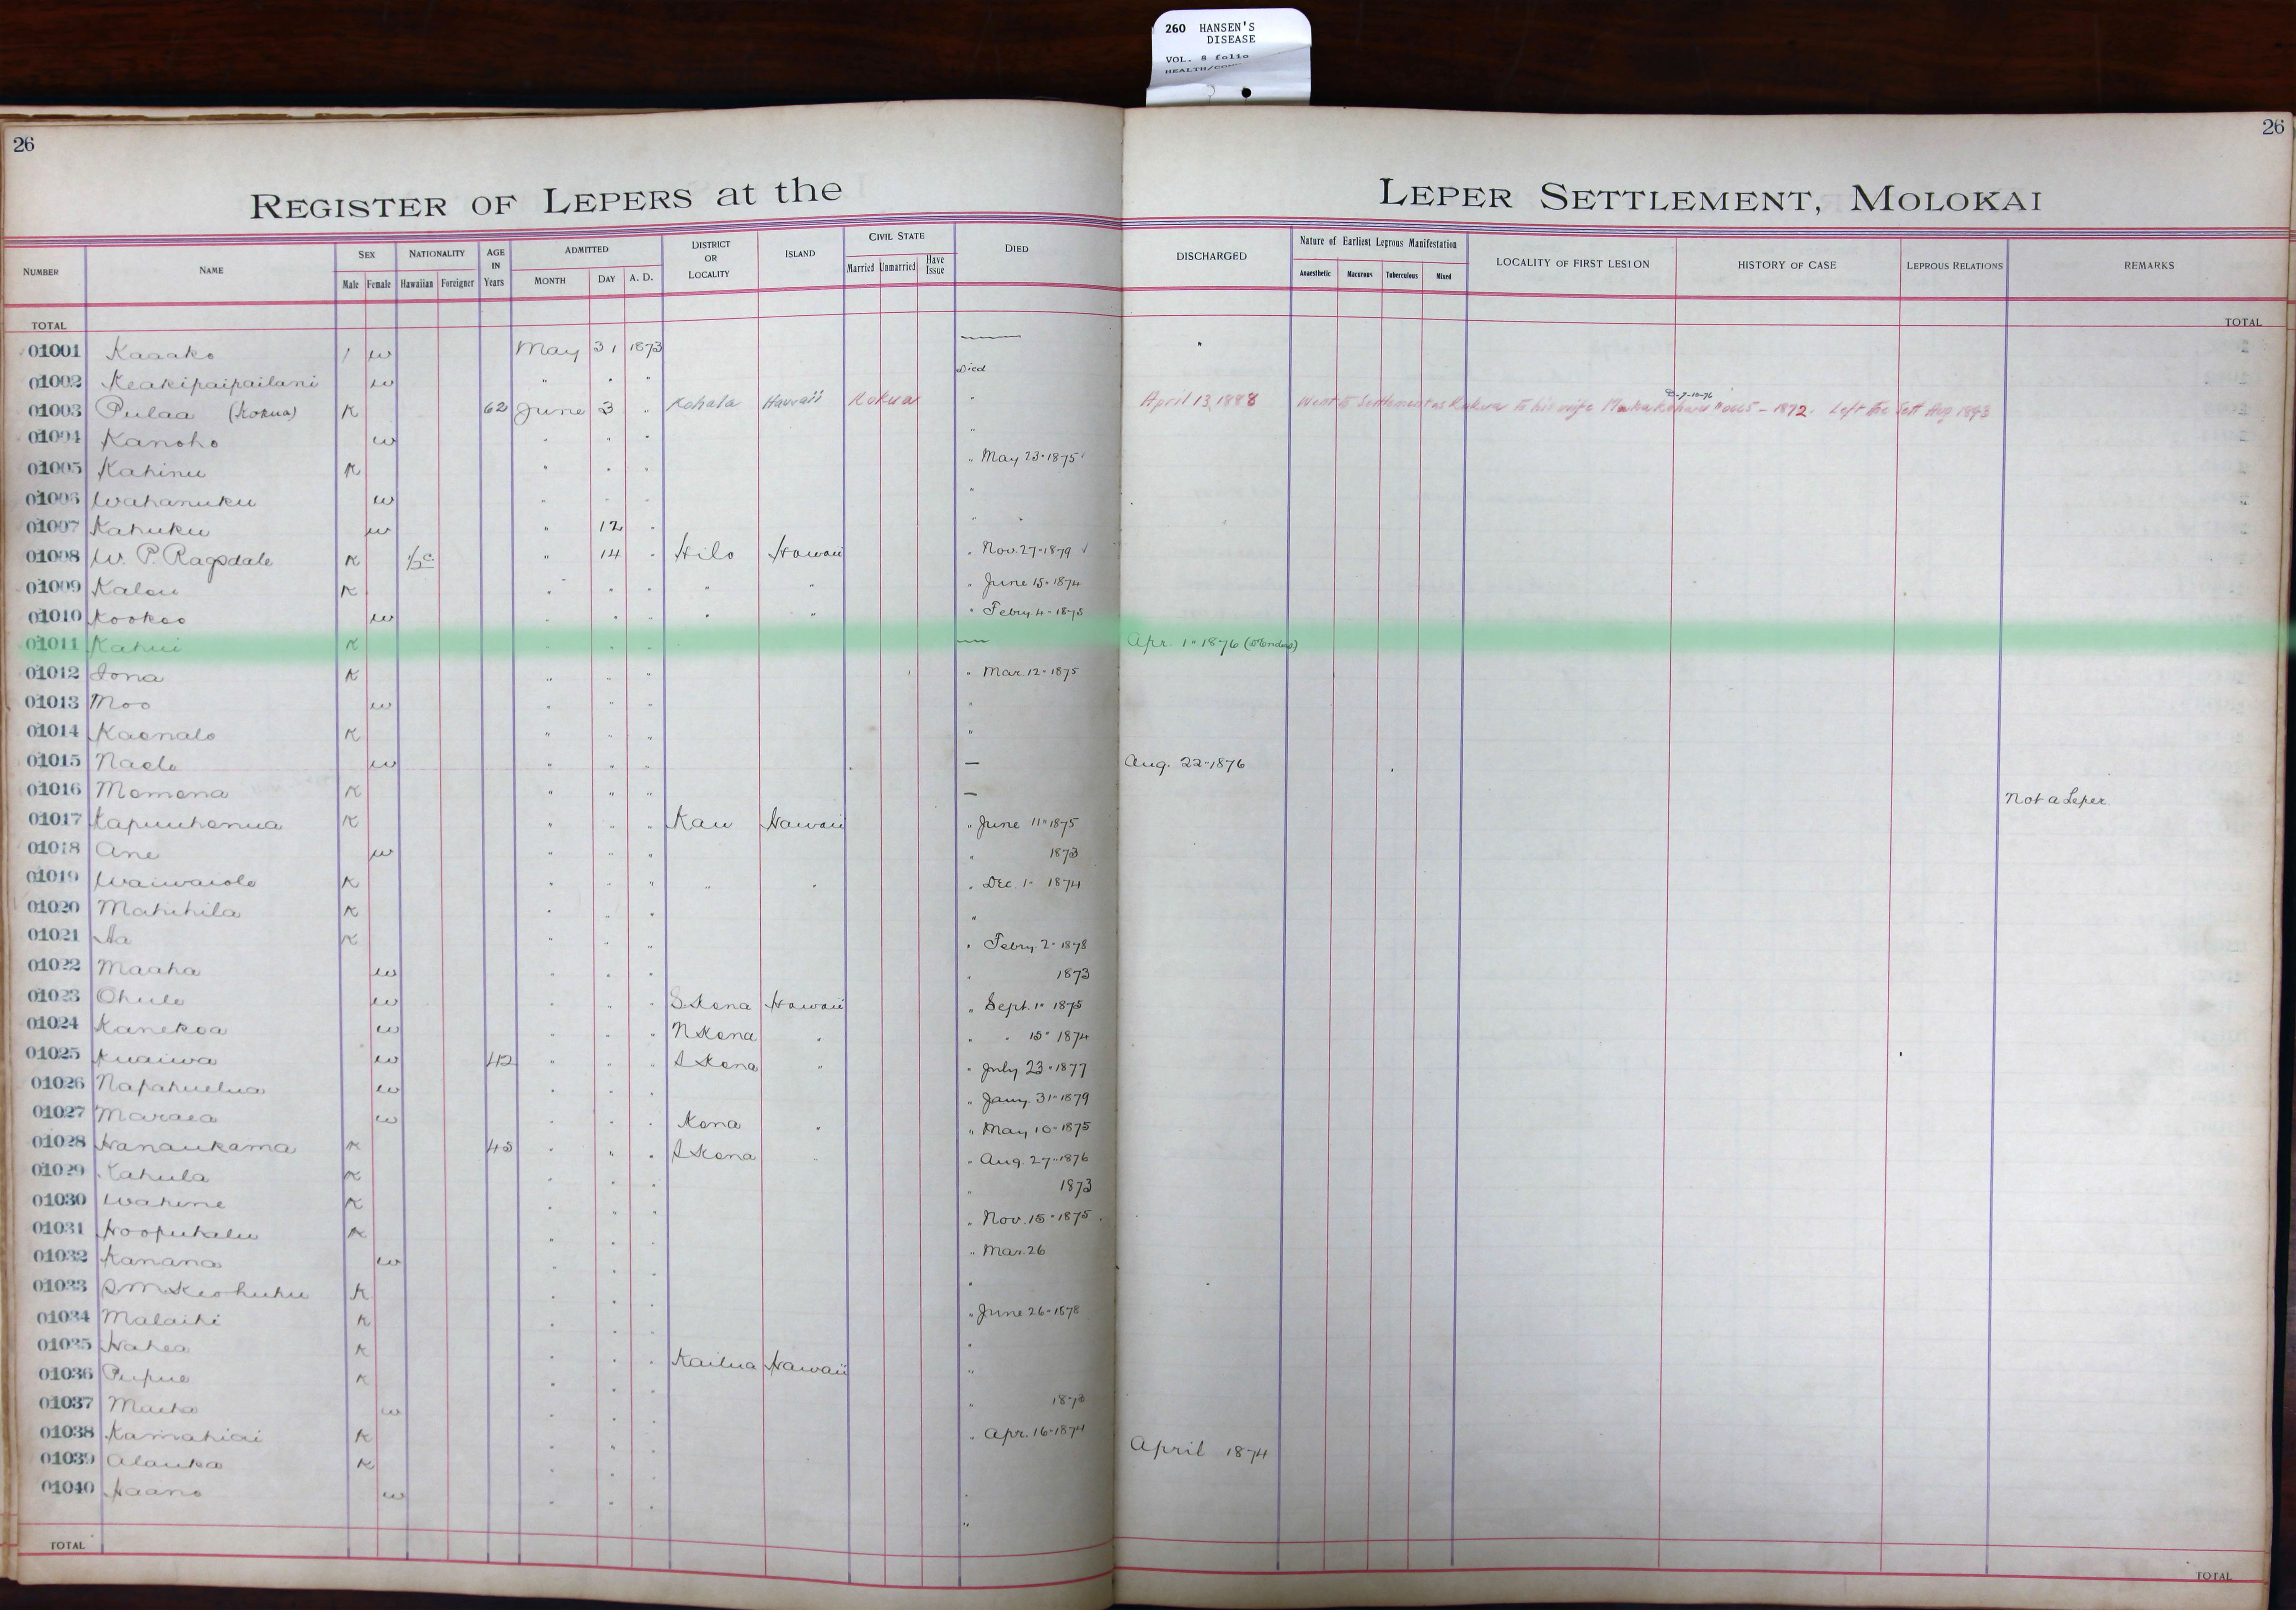 260 HANSEN'S
DISEASE
VOL. 8 folio
HEALTH/
26
26
REGISTER OF LEPERS at the LEPER SETTLEMENT, MOLOKAI
NUMBER NAME SEX Male Female NATIONALITY Hawaiian Foreigner AGE IN Years ADMITTED MONTH DAY A. D. DISTRICT OR LOCALITY ISLAND CIVIL STATE Married Unmarried Have Issue DIED DISCHARGED Nature of Earliest Leprous Manifestation Anaesthetic Macurous Tuberculous Mixed LOCALITY OF FIRST LESION HISTORY OF CASE LEPROUS RELATIONS REMARKS
TOTAL TOTAL
01001 Kaaako / w May 31 1873 — "
01002 Keakipaipailani w " " " Died
01003 Pulaa (Kokua) K 62 June 3 " Kohala Hawaii Kokua " April 13, 1888 Went to Settlement as Kokua to his wife - 1872. Left the Sett Aug 1893
01004 Kanoho w " " " "
01005 Kahinu K " " " " May 23" 1875
01006 Wahanuku w " " " "
01007 Kahuku w " 12 " "
01008 W. P. Ragsdale K 1/2 c " 14 " Hilo Hawaii " Nov. 27" 1879
01009 Kalou K " " " " " " June 15" 1874
01010 Kookoo w " " " " " " Febry 4 - 1875
01011 Kahui K " " " — Apr. 1" 1876
01012 Iona K " " " " Mar. 12" 1875
01013 Moo w " " " "
01014 Kaonalo K " " " "
01015 Naolo w " " " — Aug. 22" 1876
01016 Momona K " " " — Not a Leper
01017 Kapuuhonua K " " " Kau Hawaii " June 11" 1875
01018 Ane w " " " " 1873
01019 Waiwaiole K " " " " " " Dec. 1" 1874
01020 Mahihila K " " " "
01021 Aa K " " " " Febry. 2" 1878
01022 Maaha w " " " " 1873
01023 Ohule w " " " S Kona Hawaii " Sept. 1" 1875
01024 Kanekoa w " " " N Kona " " " 15" 1874
01025 Kuaiwa w 42 " " " S Kona " " July 23" 1877
01026 Napahuelua w " " " " Jany. 31" 1879
01027 Maraea w " " " Kona " " May 10" 1875
01028 Hanaukama K 45 " " " S Kona " " Aug. 27" 1876
01029 Kahula K " " " " 1873
01030 Wahine K " " " " Nov. 15" 1875
01031 Hoopukalu K " " " " Mar. 26
01032 Kanana w " " " "
01033 S M Keohuhu K " " " " June 26" 1878
01034 Malaihi K " " " "
01035 Hahea K " " " Kailua Hawaii "
01036 Pupue K " " " " 1873
01037 Maeha w " " " " Apr. 16" 1874
01038 Kamahiai K " " " April 1874
01039 Alauka K " " " "
01040 Haano w " " " "
TOTAL TOTAL